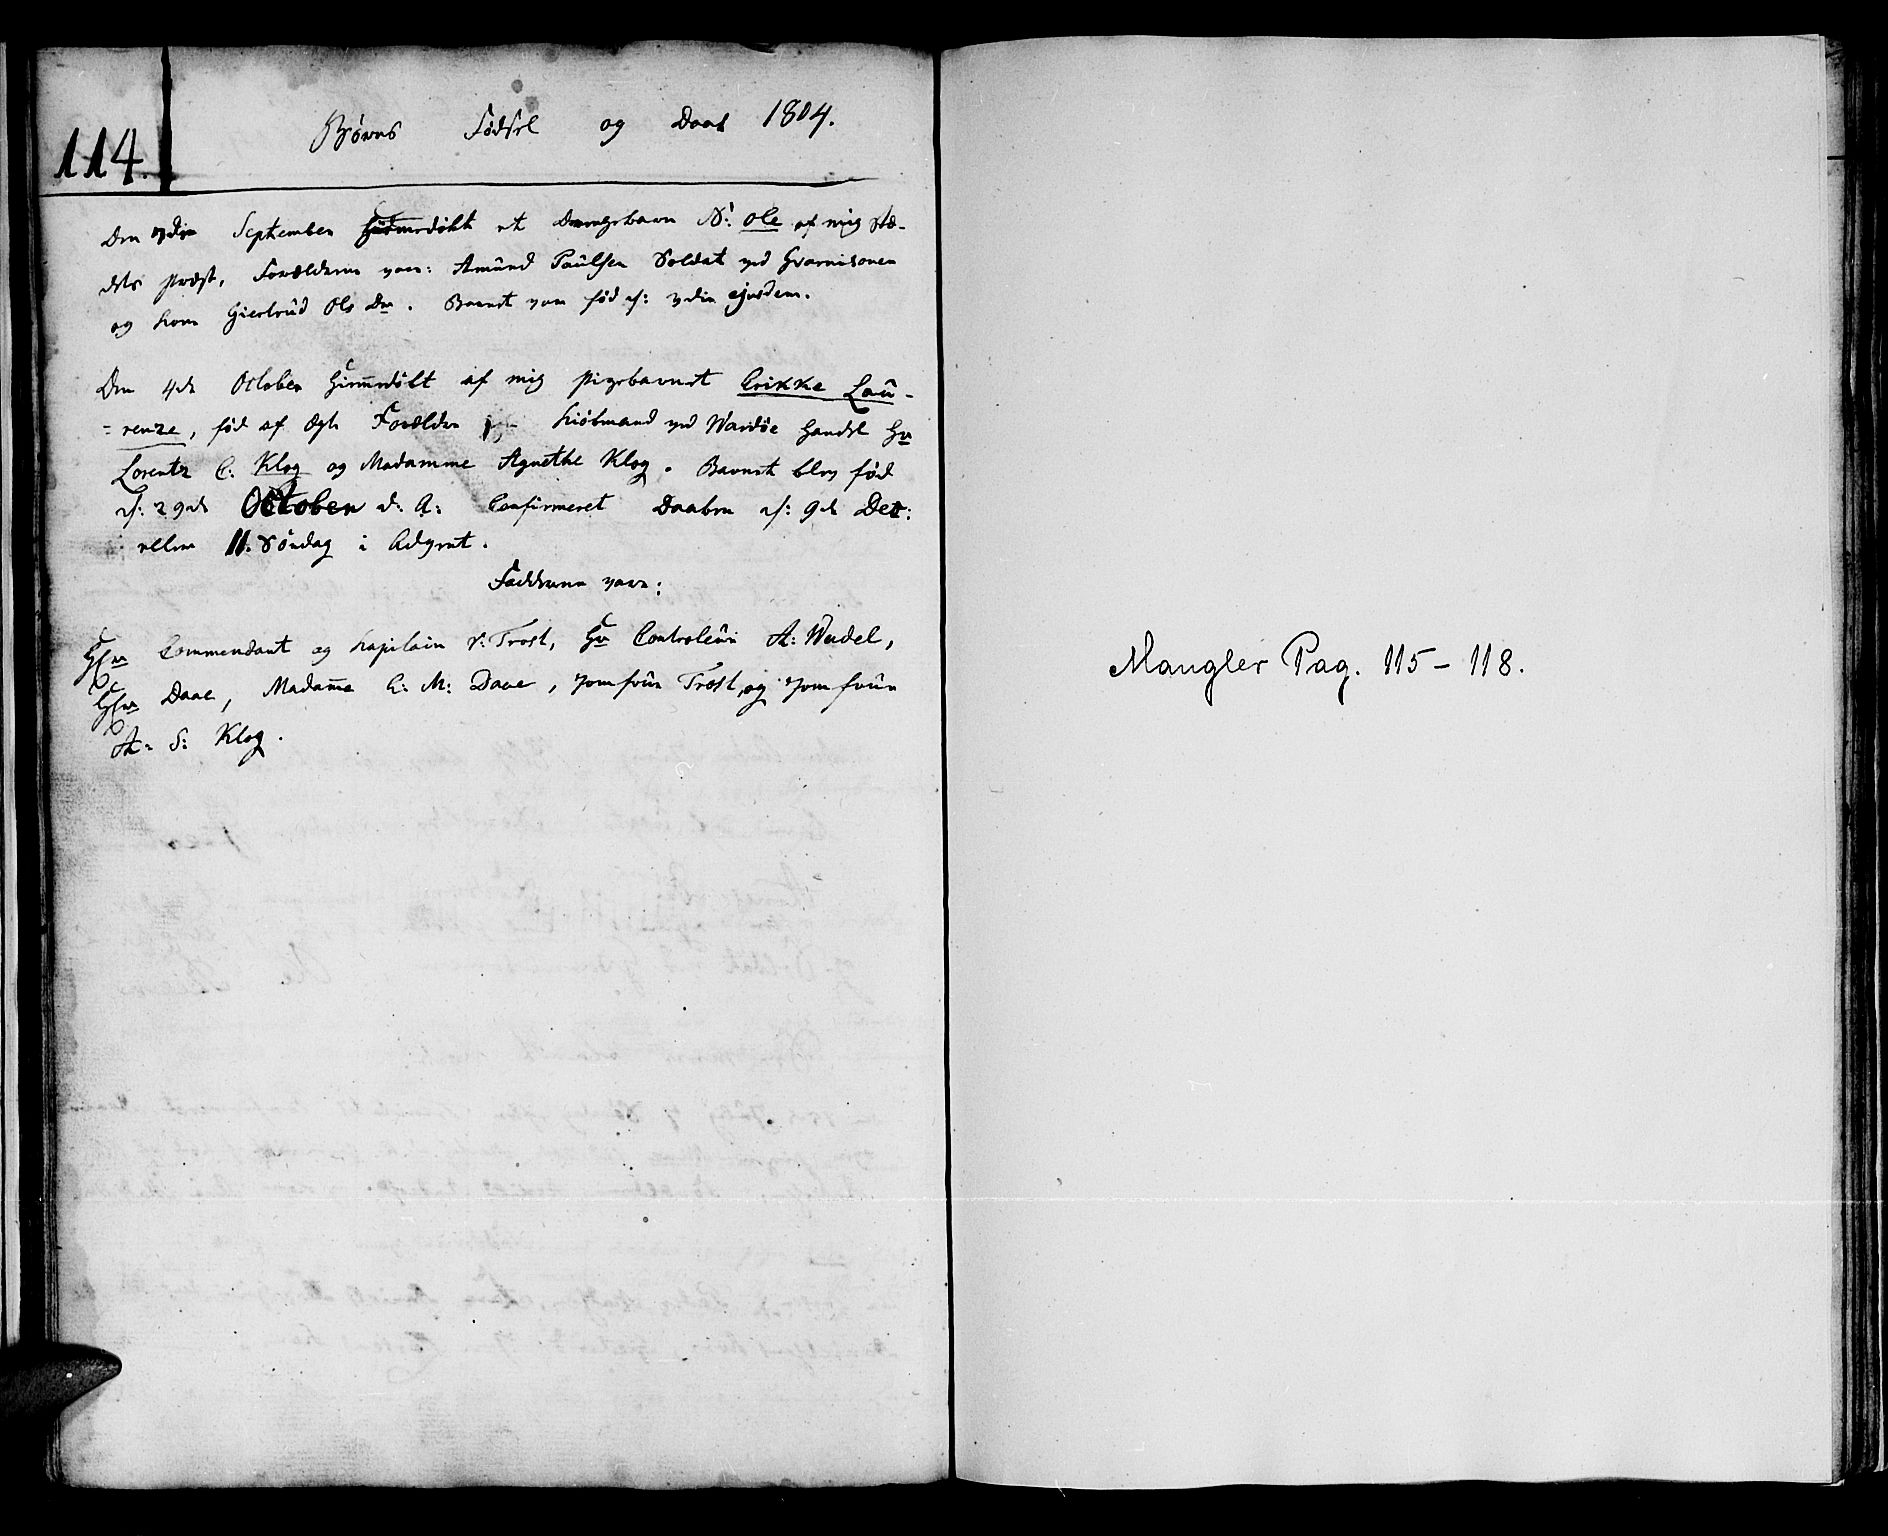 114.
Børns Fødsel og Daab 1804.
Den September hiemdøbt et Drengebarn N: Ole af mig Stæ-
dets Præst, Forældrene vare: Amund Paulsen Soldat ved Gvarnisonen
og Kone Giertrud Ols Dr. Barnet var fød d: 7din ejusdem.
Den 4de October Hiem̅edøbt af mig Pigebarnet Erikke Lau-
=renze, fød af Ægte Forældre Kiøbmand ved Wardøe Handel Hr
Lorentz C: Klog og Madamme Agnethe Klog. Barnet blev fød
d: 29de October d: A: Confirmeret Daaben d: 9de Dec:
eller II. Søndag i Advent.
Fadderne vare:
Hrr Commendant og Kapitain v: Trost, Hr Controleur A: Wadel,
Hrr Daae, Madam̅e C: M: Daae, Jomfrue Trost, og Jomfrue
A: S: Klog.
Mangler Pag. 115 - 118.